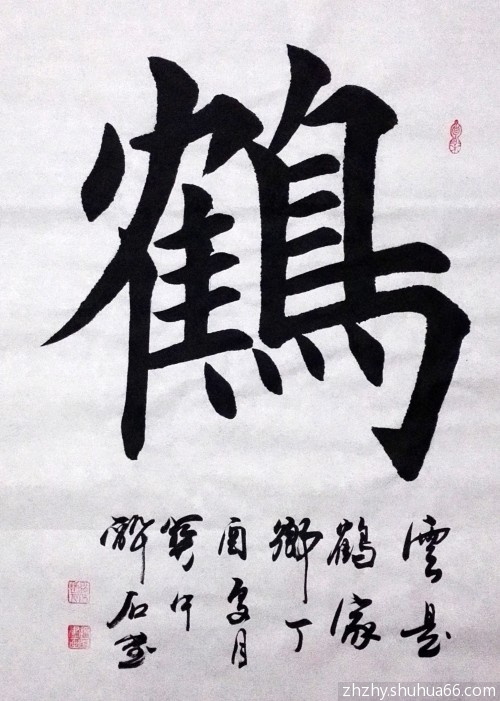 鶴
雲是
鶴家
鄉丁
酉夏月
醉石
zhzhy.shuhua66.com